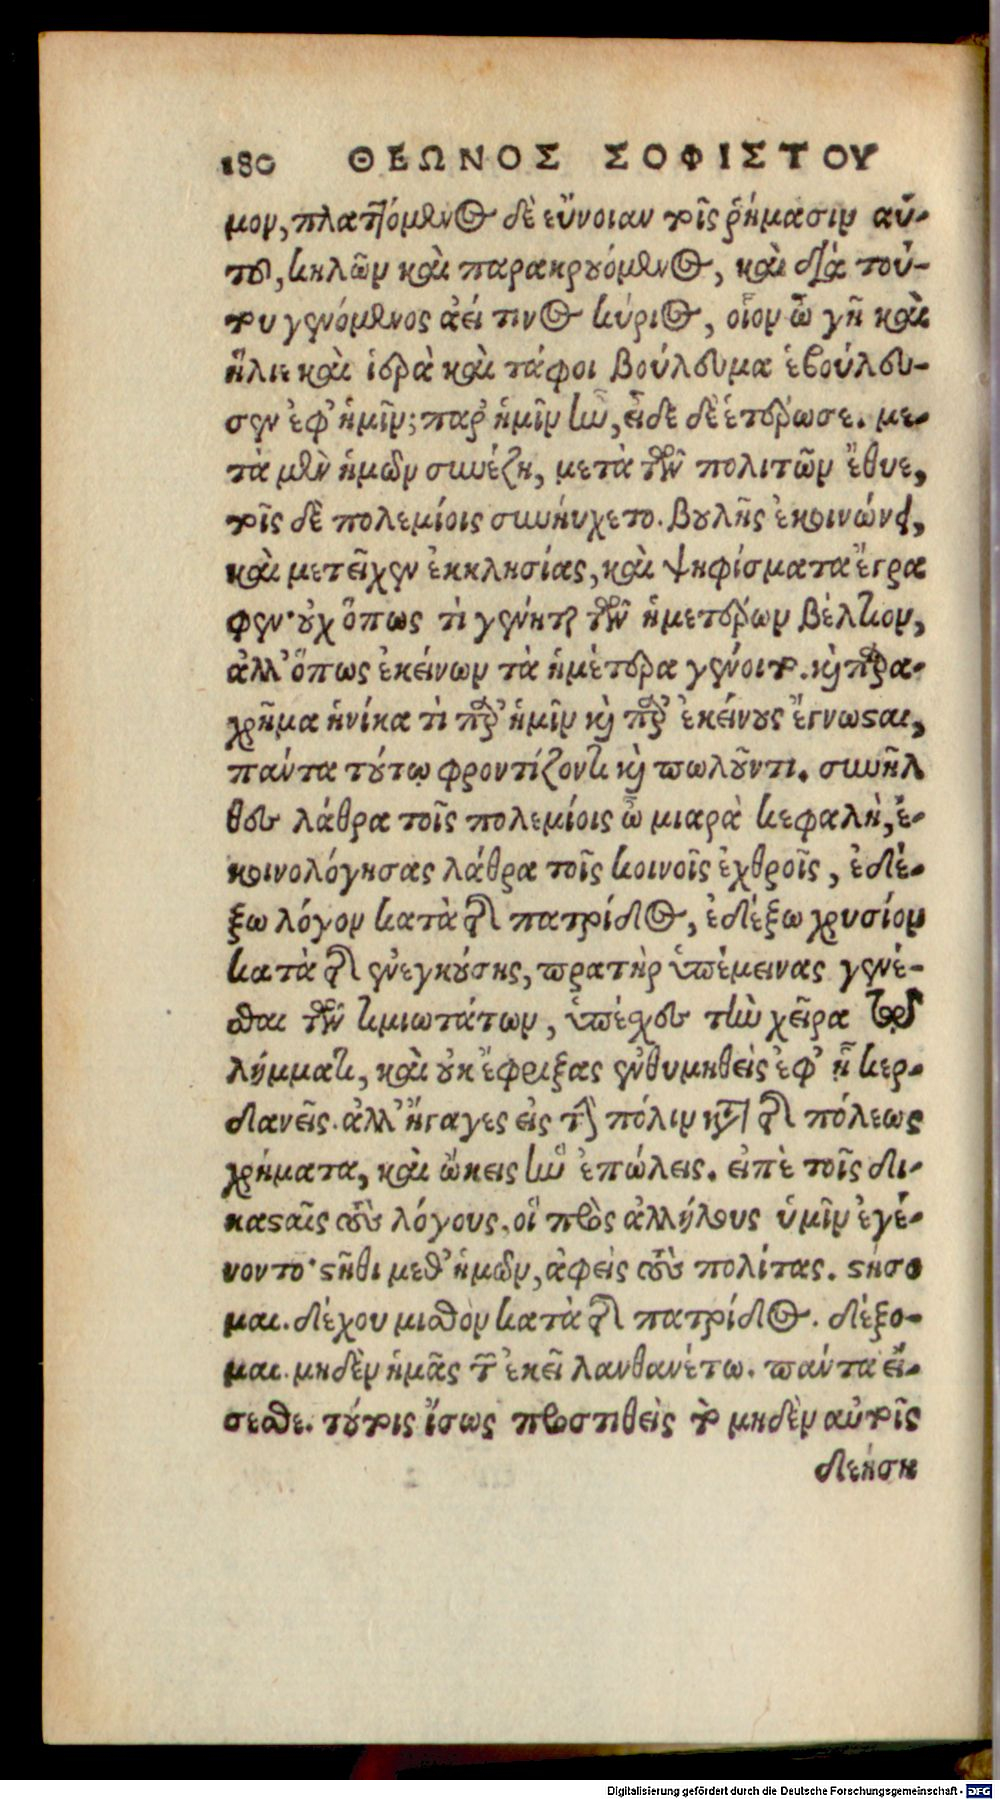 180 ΘΕΩΝΟΣ ΣΟΦΙΣΤΟΥ
μον, πλαττόμενος δὲ εὔνοιαν τοῖς ῥήμασιν αὐ-
τοῦ, κηλῶν καὶ παρακρουόμενος, καὶ διὰ τού-
του γενόμενος ἀεί τινος κύριος, οἷον ὦ γῆ καὶ
ἥλιε καὶ ἱερὰ καὶ τάφοι βούλευμα ἐβούλευ-
σεν ἐφ' ἡμῖν; παρ' ἡμῖν ἦν, εἶδε δὲ ἑτέρωσε. με-
τὰ μὲν ἡμῶν συνέζη, μετὰ τῶν πολιτῶν ἔθυε,
τοῖς δὲ πολεμίοις συνηύχετο. βουλῆς ἐκοινώνει,
καὶ μετεῖχεν ἐκκλησίας, καὶ ψηφίσματα ἔγρα
φεν· οὐχ ὅπως τὶ γένηται τῶν ἡμετέρων βέλτιον,
ἀλλ' ὅπως ἐκείνων τὰ ἡμέτερα γένοιτο. καὶ παρα-
χρῆμα ἡνίκα τὶ παρ' ἡμῖν καὶ παρ' ἐκείνους ἔγνωσαι,
πάντα τούτῳ φροντίζοντι καὶ πωλοῦντι. συνῆλ
θες λάθρα τοῖς πολεμίοις ὦ μιαρὰ κεφαλὴ, ἐ-
κοινολόγησας λάθρα τοῖς κοινοῖς ἐχθροῖς, ἐδέ-
ξω λόγον κατὰ τῆς πατρίδος, ἐδέξω χρυσίον
κατὰ τῆς ἐνεγκούσης, πρατὴρ ὑπέμεινας γενέ-
σθαι τῶν τιμιωτάτων, ὑπέχες τὴν χεῖρα τῷ
λήμματι, καὶ οὐκ ἔφριξας ἐνθυμηθεὶς ἐφ' ᾗ κερ-
δανεῖς. ἀλλ' ἤγαγες εἰς τὴν πόλιν κατὰ τῆς πόλεως
χρήματα, καὶ ᾤκεις ἣν ἐπώλεις. εἰπὲ τοῖς δι-
κασταῖς τοὺς λόγους, οἳ πρὸς ἀλλήλους ὑμῖν ἐγέ-
νοντο· στῆθι μεθ' ἡμῶν, ἀφεὶς τοὺς πολίτας. στήσο
μαι. δέχου μισθὸν κατὰ τῆς πατρίδος. δέξο-
μαι. μηδὲν ἡμᾶς τῶν ἐκεῖ λανθανέτω. πάντα εἴ-
σεσθε. τούτοις ἴσως προστιθεὶς τὸ μηδὲν αὐτοῖς
δεήσῃ
Digitalisierung gefördert durch die Deutsche Forschungsgemeinschaft - DFG